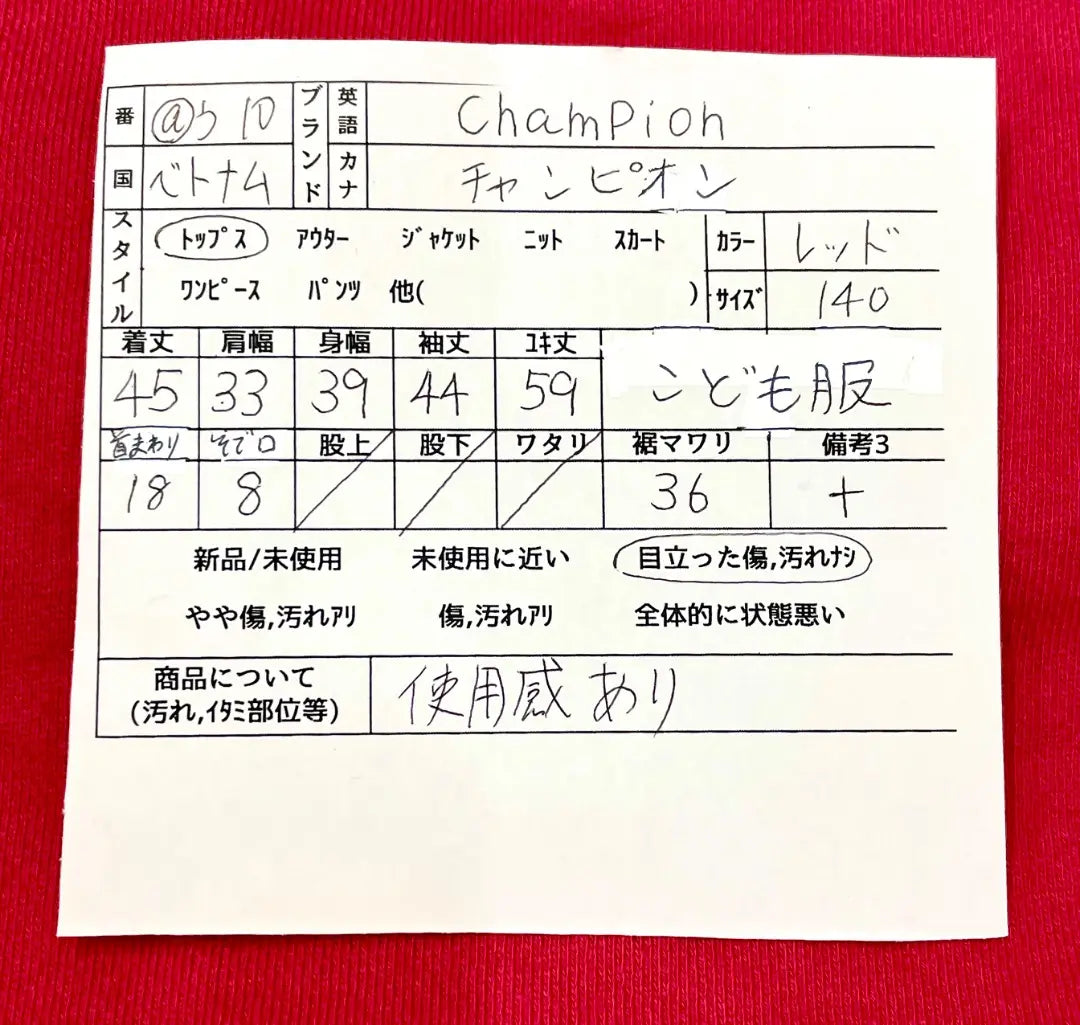 番 @う 10 ブランド 英語 Champion
国 ベトナム カナ チャンピオン
スタイル トップス アウター ジャケット ニット スカート カラー レッド
ワンピース パンツ 他( ) サイズ 140
着丈 肩幅 身幅 袖丈 ユキ丈
45 33 39 44 59 こども服
首まわり そで口 股上 股下 ワタリ 裾マワリ 備考3
18 8 36 +
新品/未使用 未使用に近い 目立った傷,汚れナシ
やや傷,汚れアリ 傷,汚れアリ 全体的に状態悪い
商品について 使用感あり
(汚れ,イタミ部位等)